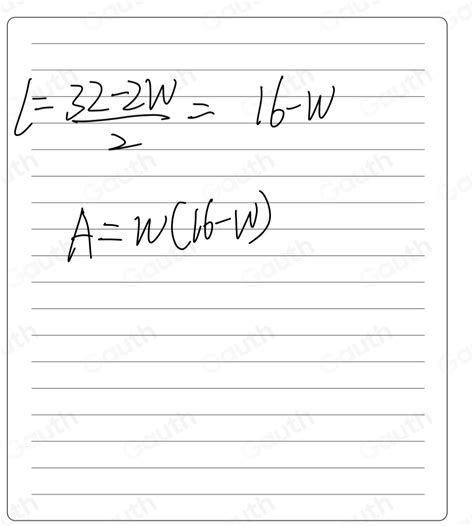 l = \frac{32-2W}{2} = 16-W
A = W(16-W)